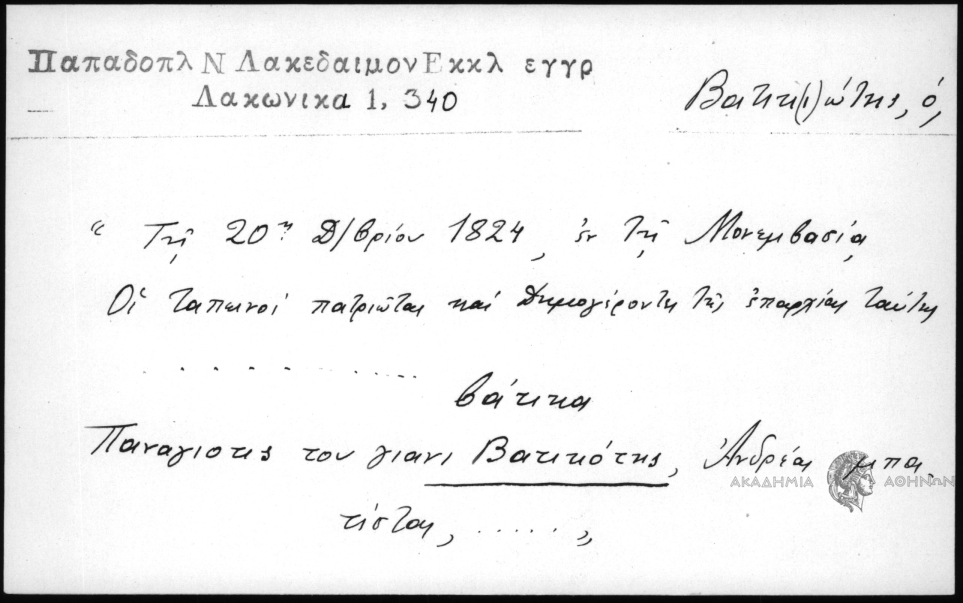 Παπαδοπλ Ν ΛακεδαιμονΕκκλ εγγρ
Λακωνικα 1, 340
Βατικ(ι)ώτης, ὁ,
“ Τῇ 20ῃ Δ/βρίου 1824, ἐν τῇ Μονεμβασίᾳ
Οἱ ταπεινοί πατριῶται καί Δημογέροντες τῆς ἐπαρχίας ταύτης
. . . . . . . . . . . . .
Βάτικα
Παναγιοτις του γιανι Βατικότης, Ἀνδρέας μπα-
τίστας, . . . . . ,,
ΑΚΑΔΗΜΙΑ ΑΘΗΝΩΝ